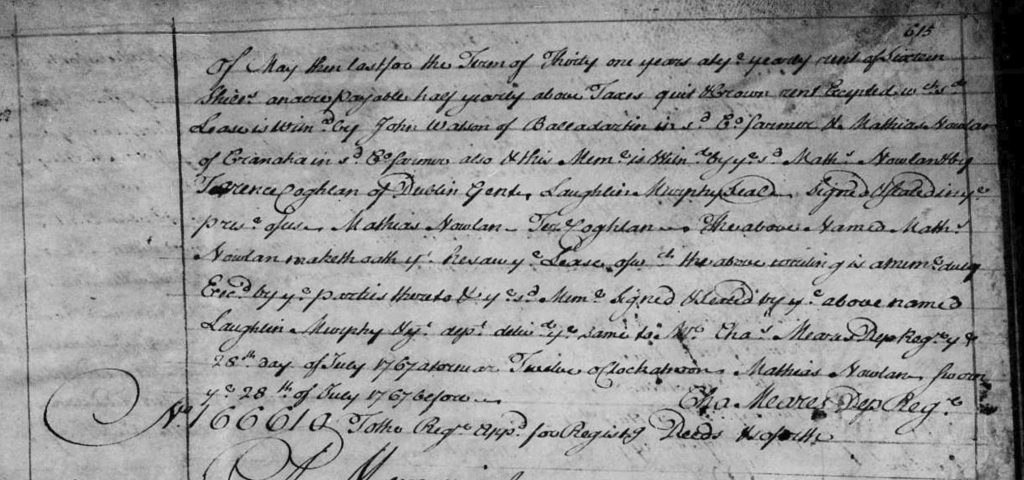 615
Of May then last for the Term of Thirty one years at ye yearly rent of Sixteen
Shills an acre payable half yearly above Taxes quit & Crown rent Excepted wch sd
Lease is Witnd by John Watson of Balladartin in sd Co farmer & Mathias Nowlan
of Cranaha in sd Co farmer also & this Meme is Witnd by ye sd Maths Nowlan & by
Terence Coghlan of Dublin Gent Laughlin Murphy Seal Signed & Sealed in ye
prese of us Mathias Nowlan Ter Coghlan The above Named Maths
Nowlan maketh oath yt he saw ye Lease of wch the above writing is a meme duly
Execd by ye parties thereto & ye sd Meme Signed & Sealed by ye above named
Laughlin Murphy & yt dept delivd ye same to Mr Chas Meares Dep Regr ye
28th day of July 1767 at or near Twelve o Clock at noon Mathias Nowlan Sworn
ye 28th of July 1767 before Cha Meares Dep Regr
No 166610 To the Regr appd for Registg Deeds & so forth
A Mem